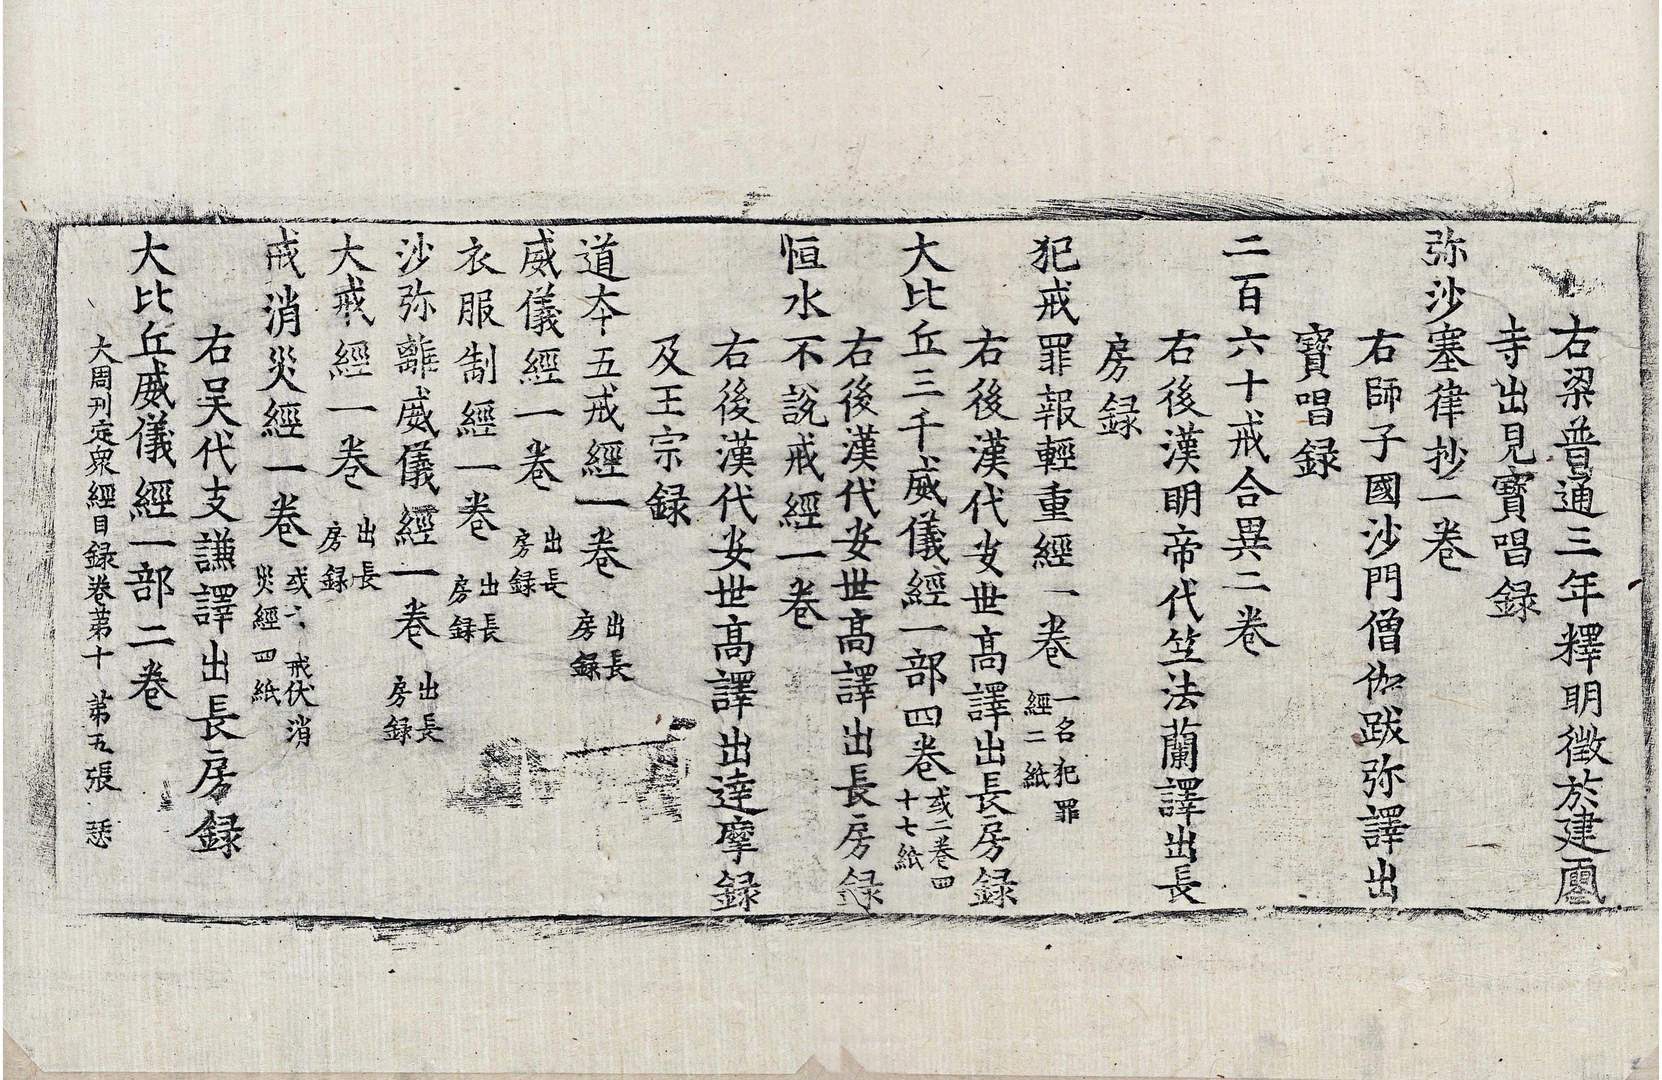 右梁普通三年釋明徵於建
寺出見寶唱録
弥沙塞律抄一卷
右師子國沙門僧伽跋弥譯出
寶唱録
二百六十戒合異二卷
右後漢明帝代竺法蘭譯出長
房録
犯戒罪報輕重經一卷 一名犯罪
經二紙
右後漢代安世髙譯出長房録
大比丘三千威儀經一部四卷 或二卷四
十七紙
右後漢代安世髙譯出長房録
恒水不說戒經一卷
右後漢代安世髙譯出達摩録
及王宗録
道夲五戒經一卷 出長
房録
威儀經一卷 出長
房録
衣服制經一卷 出長
房録
沙弥離威儀經一卷 出長
房録
大戒經一卷 出長
房録
戒消災經一卷 或云戒伏消
災經四紙
右吴代支謙譯出長房録
大比丘威儀經一部二卷
大周刊定衆經目録卷苐十 苐五張